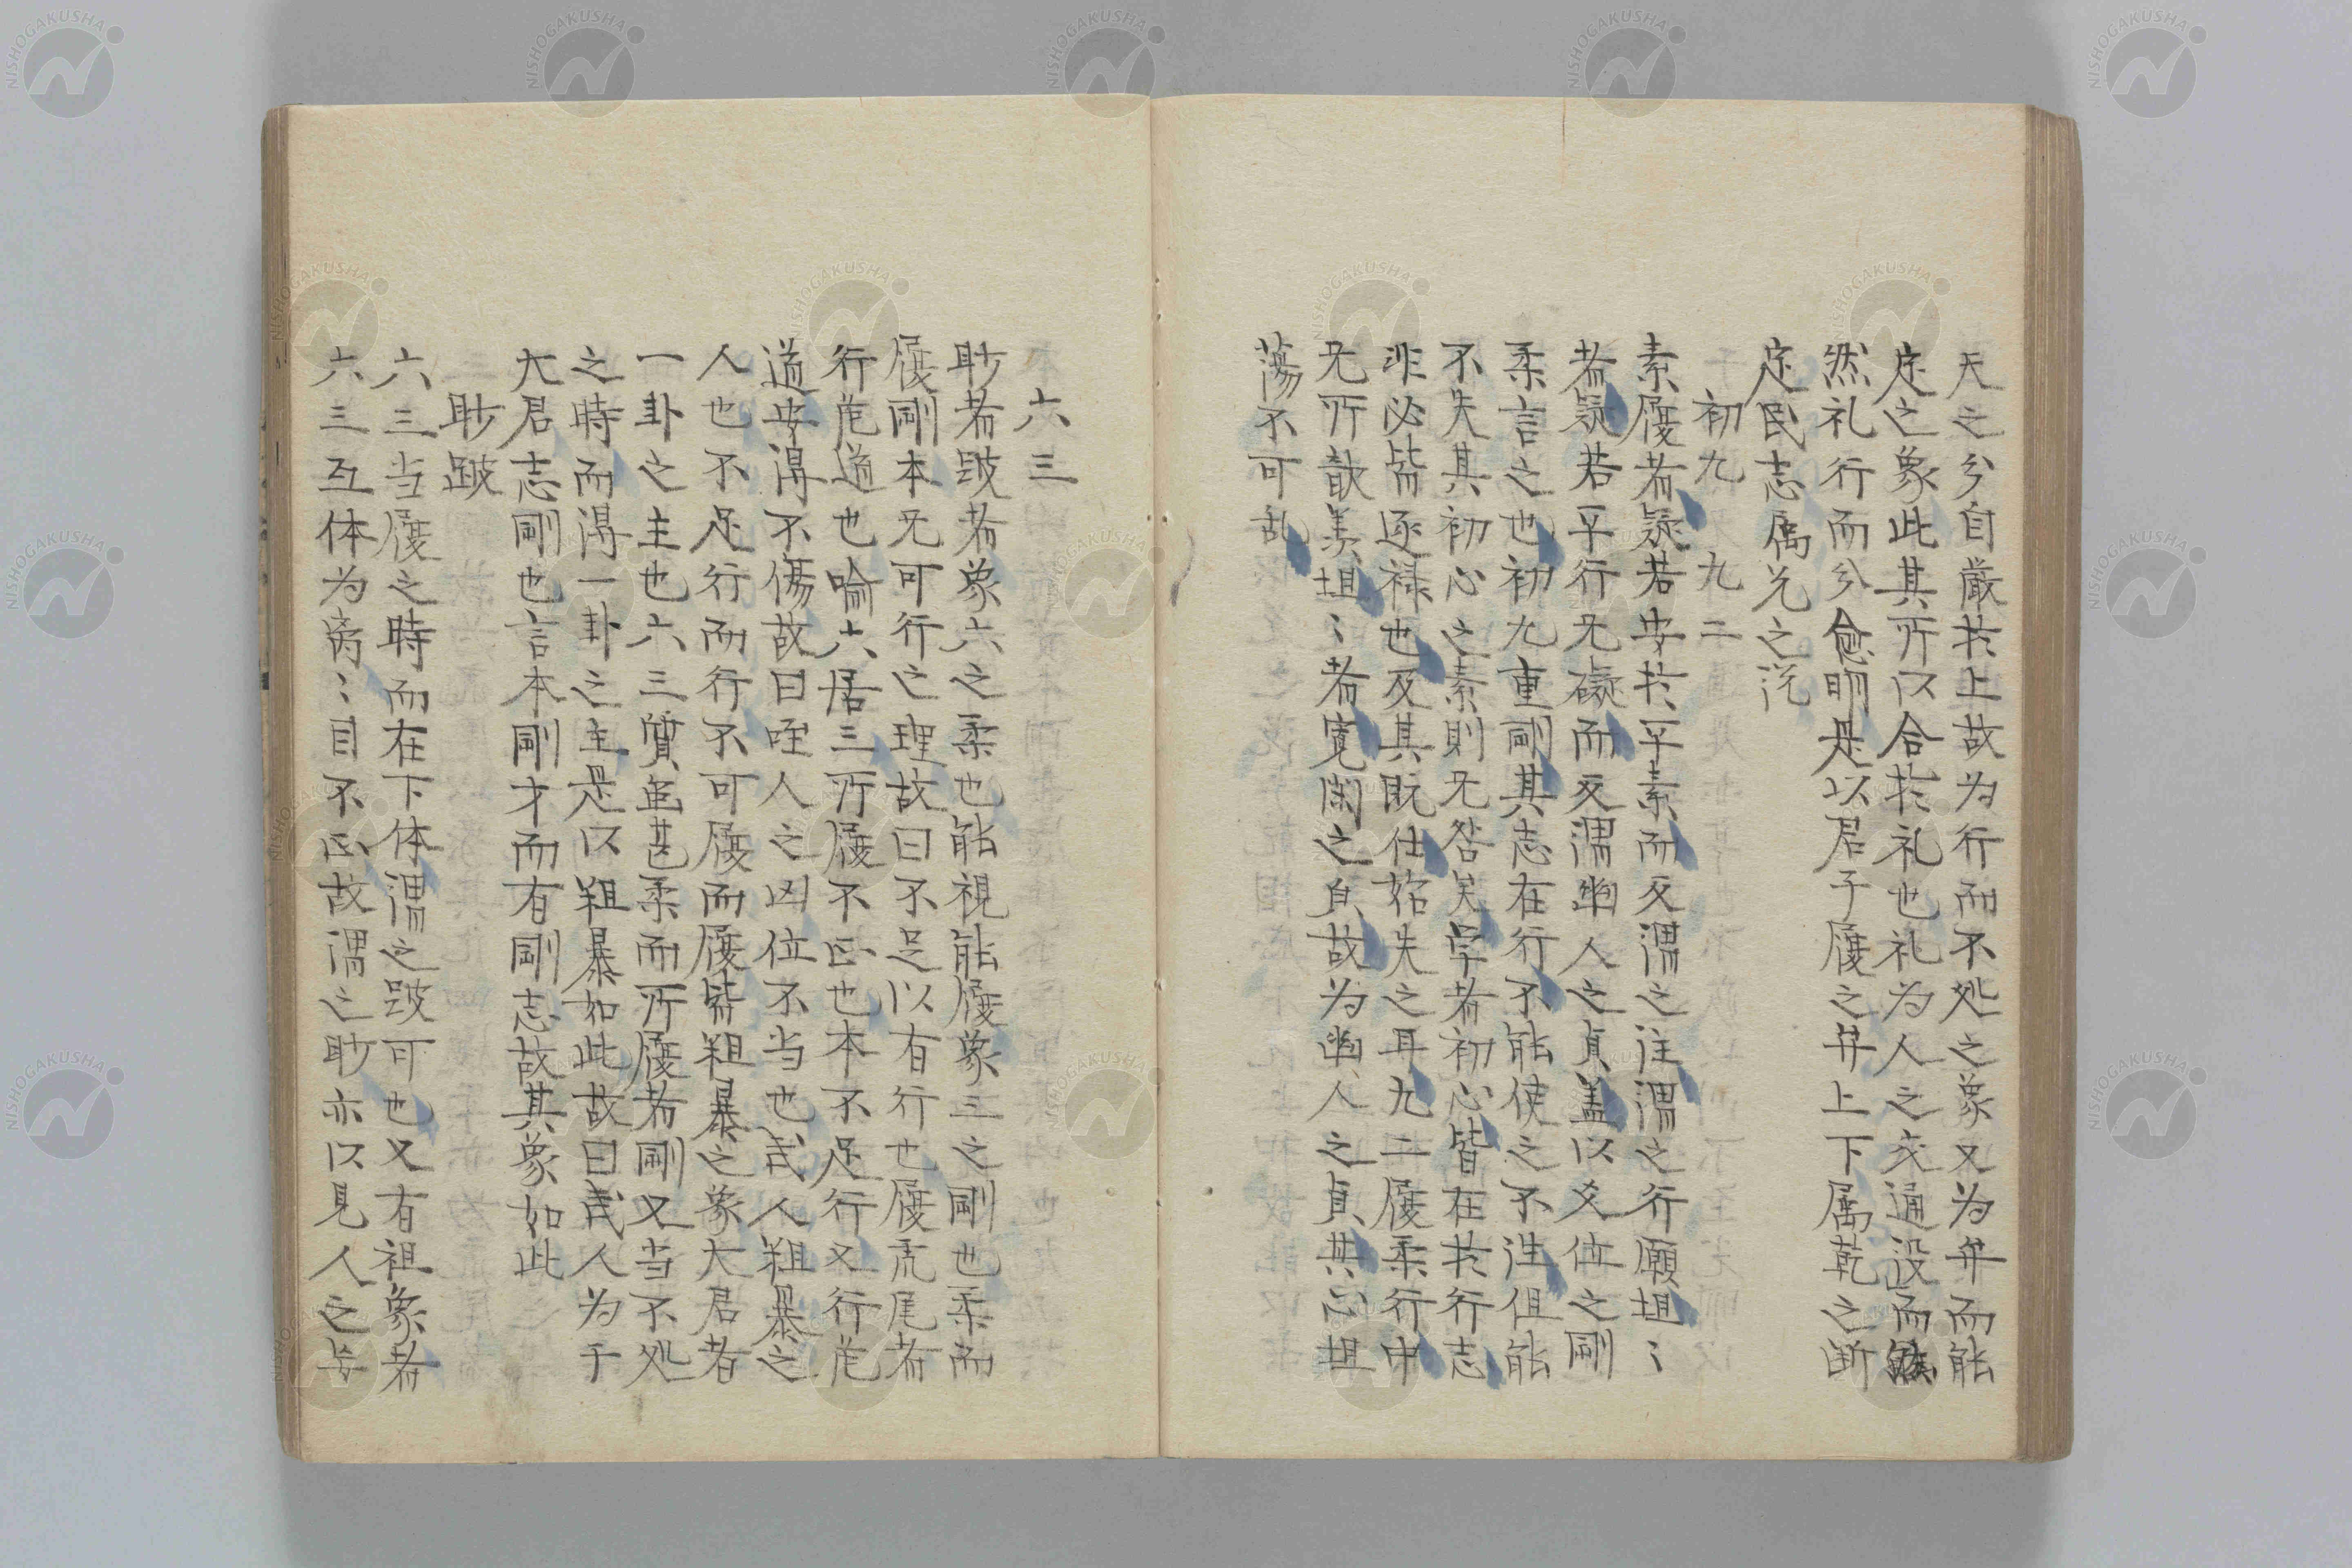 天之分自厳於上故为行而不処之象又为弁而能
定之象此其所以合於礼也礼为人之交通设而
然礼行而分愈明是以君子履之弁上下属乾之断
定民志属兑之说
初九 九二
素履者疑若安於平素而反謂之往謂之行願坦〻
者疑若平行无礙而反謂幽人之貞盖以爻位之剛
柔言之也初九重剛其志在行不能使之不往但能
不失其初心之素則无咎矣学者初心皆在於行志
非必皆逐禄也及其既仕始失之耳九二履柔行中
无所歆羡坦〻者寛闲之皃故为幽人之貞其心坦
蕩不可乱
六三
眇者跛者象六之柔也能視能履象三之剛也柔而
履剛本无可行之理故曰不足以有行也履虎尾者
行危道也喻六居三所履不正也本不足行又行危
道安得不傷故曰咥人之凶位不当也武人粗暴之
人也不足行而行不可履而履皆粗暴之象大君者
一卦之主也六三質虽甚柔而所履者剛又当不処
之時而得一卦之主是以粗暴如此故曰武人为于
大君志剛也言本剛才而有剛志故其象如此
眇跛
六三当履之時而在下体謂之跛可也又有祖象者
六三互体为离〻目不正故謂之眇亦以見人之妄
NISHOGAKUSHA